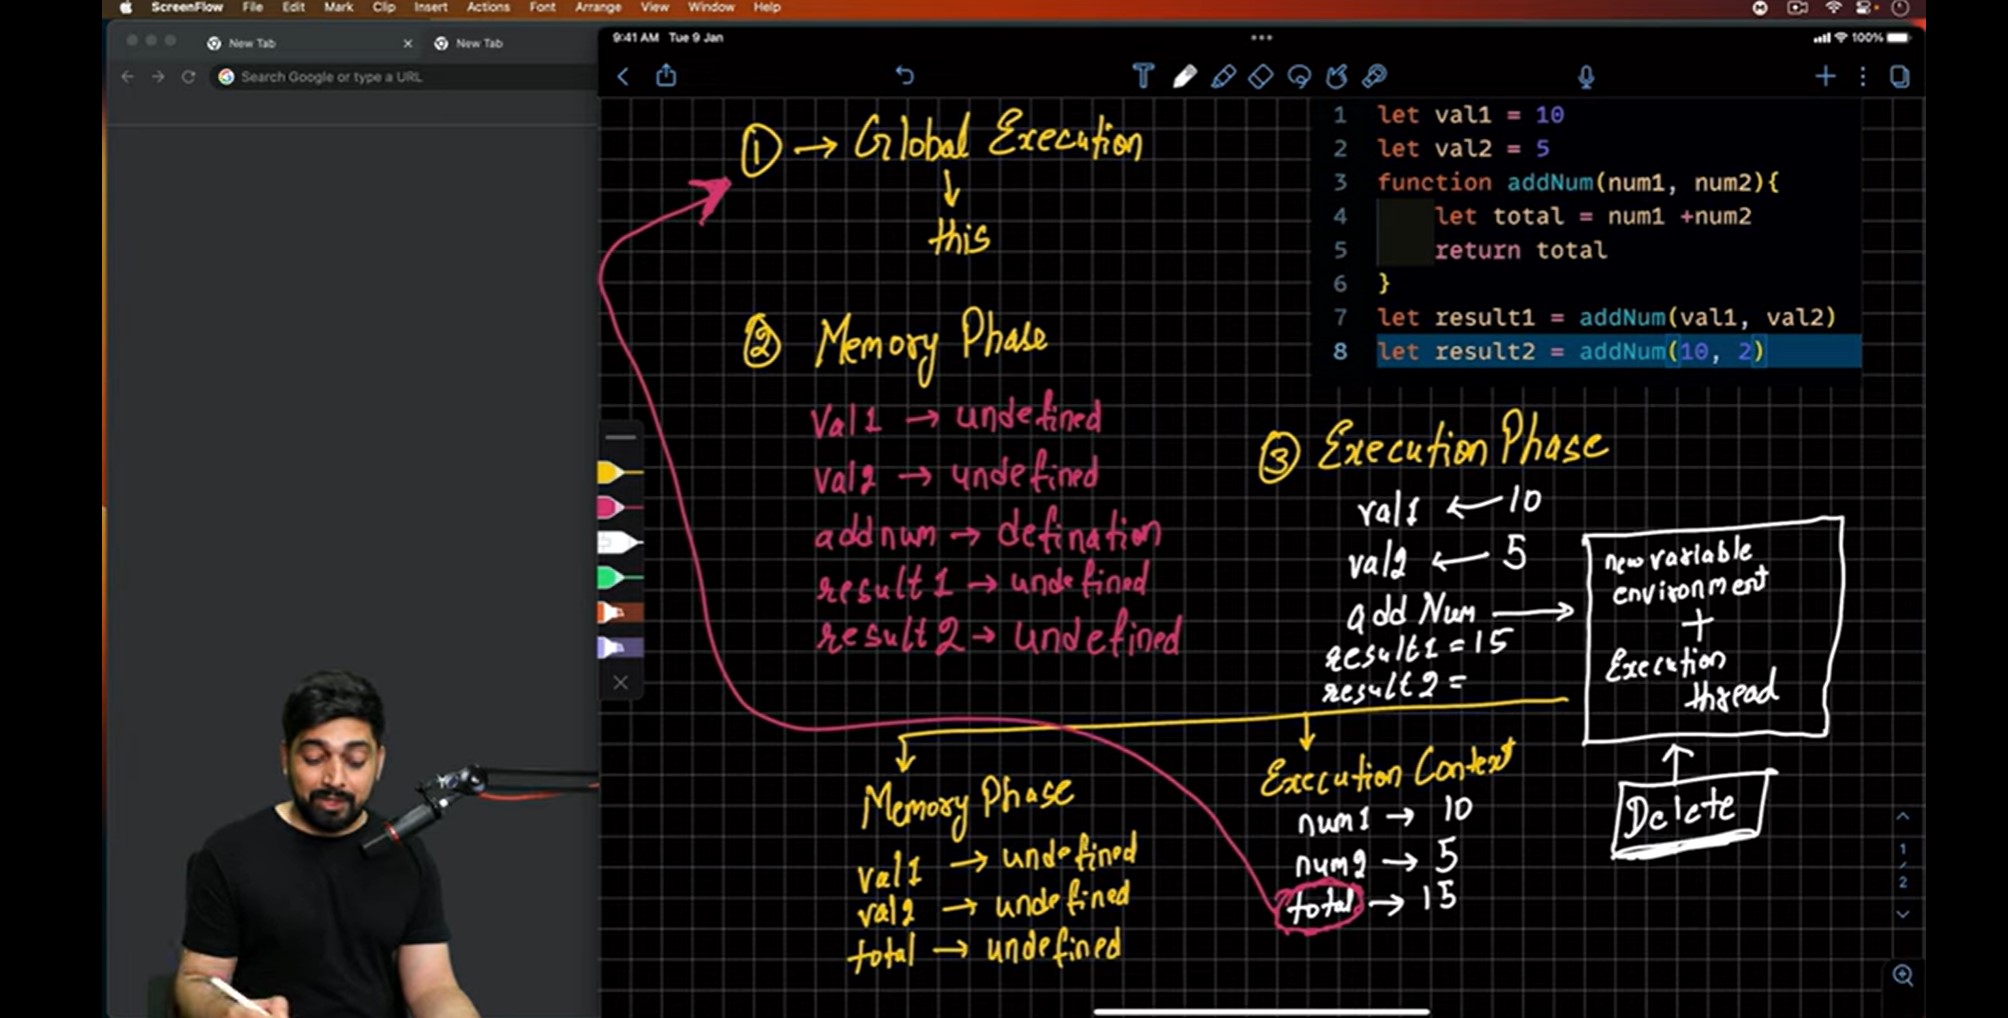 ScreenFlow File Edit Mark Clip Insert Actions Font Arrange View Window Help
New Tab
New Tab
Search Google or type a URL
9:41 AM Tue 9 Jan
100%
① → Global Execution
↓
this
② Memory Phase
Val1 → undefined
val2 → undefined
addnum → defination
result1 → undefined
result2 → undefined
1 let val1 = 10
2 let val2 = 5
3 function addNum(num1, num2){
4 let total = num1 +num2
5 return total
6 }
7 let result1 = addNum(val1, val2)
8 let result2 = addNum(10, 2)
③ Execution Phase
val1 ← 10
val2 ← 5
add Num →
result1 = 15
result2 =
new variable
environment
+
Execution
thread
Delete
Memory Phase
val1 → undefined
val2 → undefined
total → undefined
Execution Context
num1 → 10
num2 → 5
total → 15
1
/
2